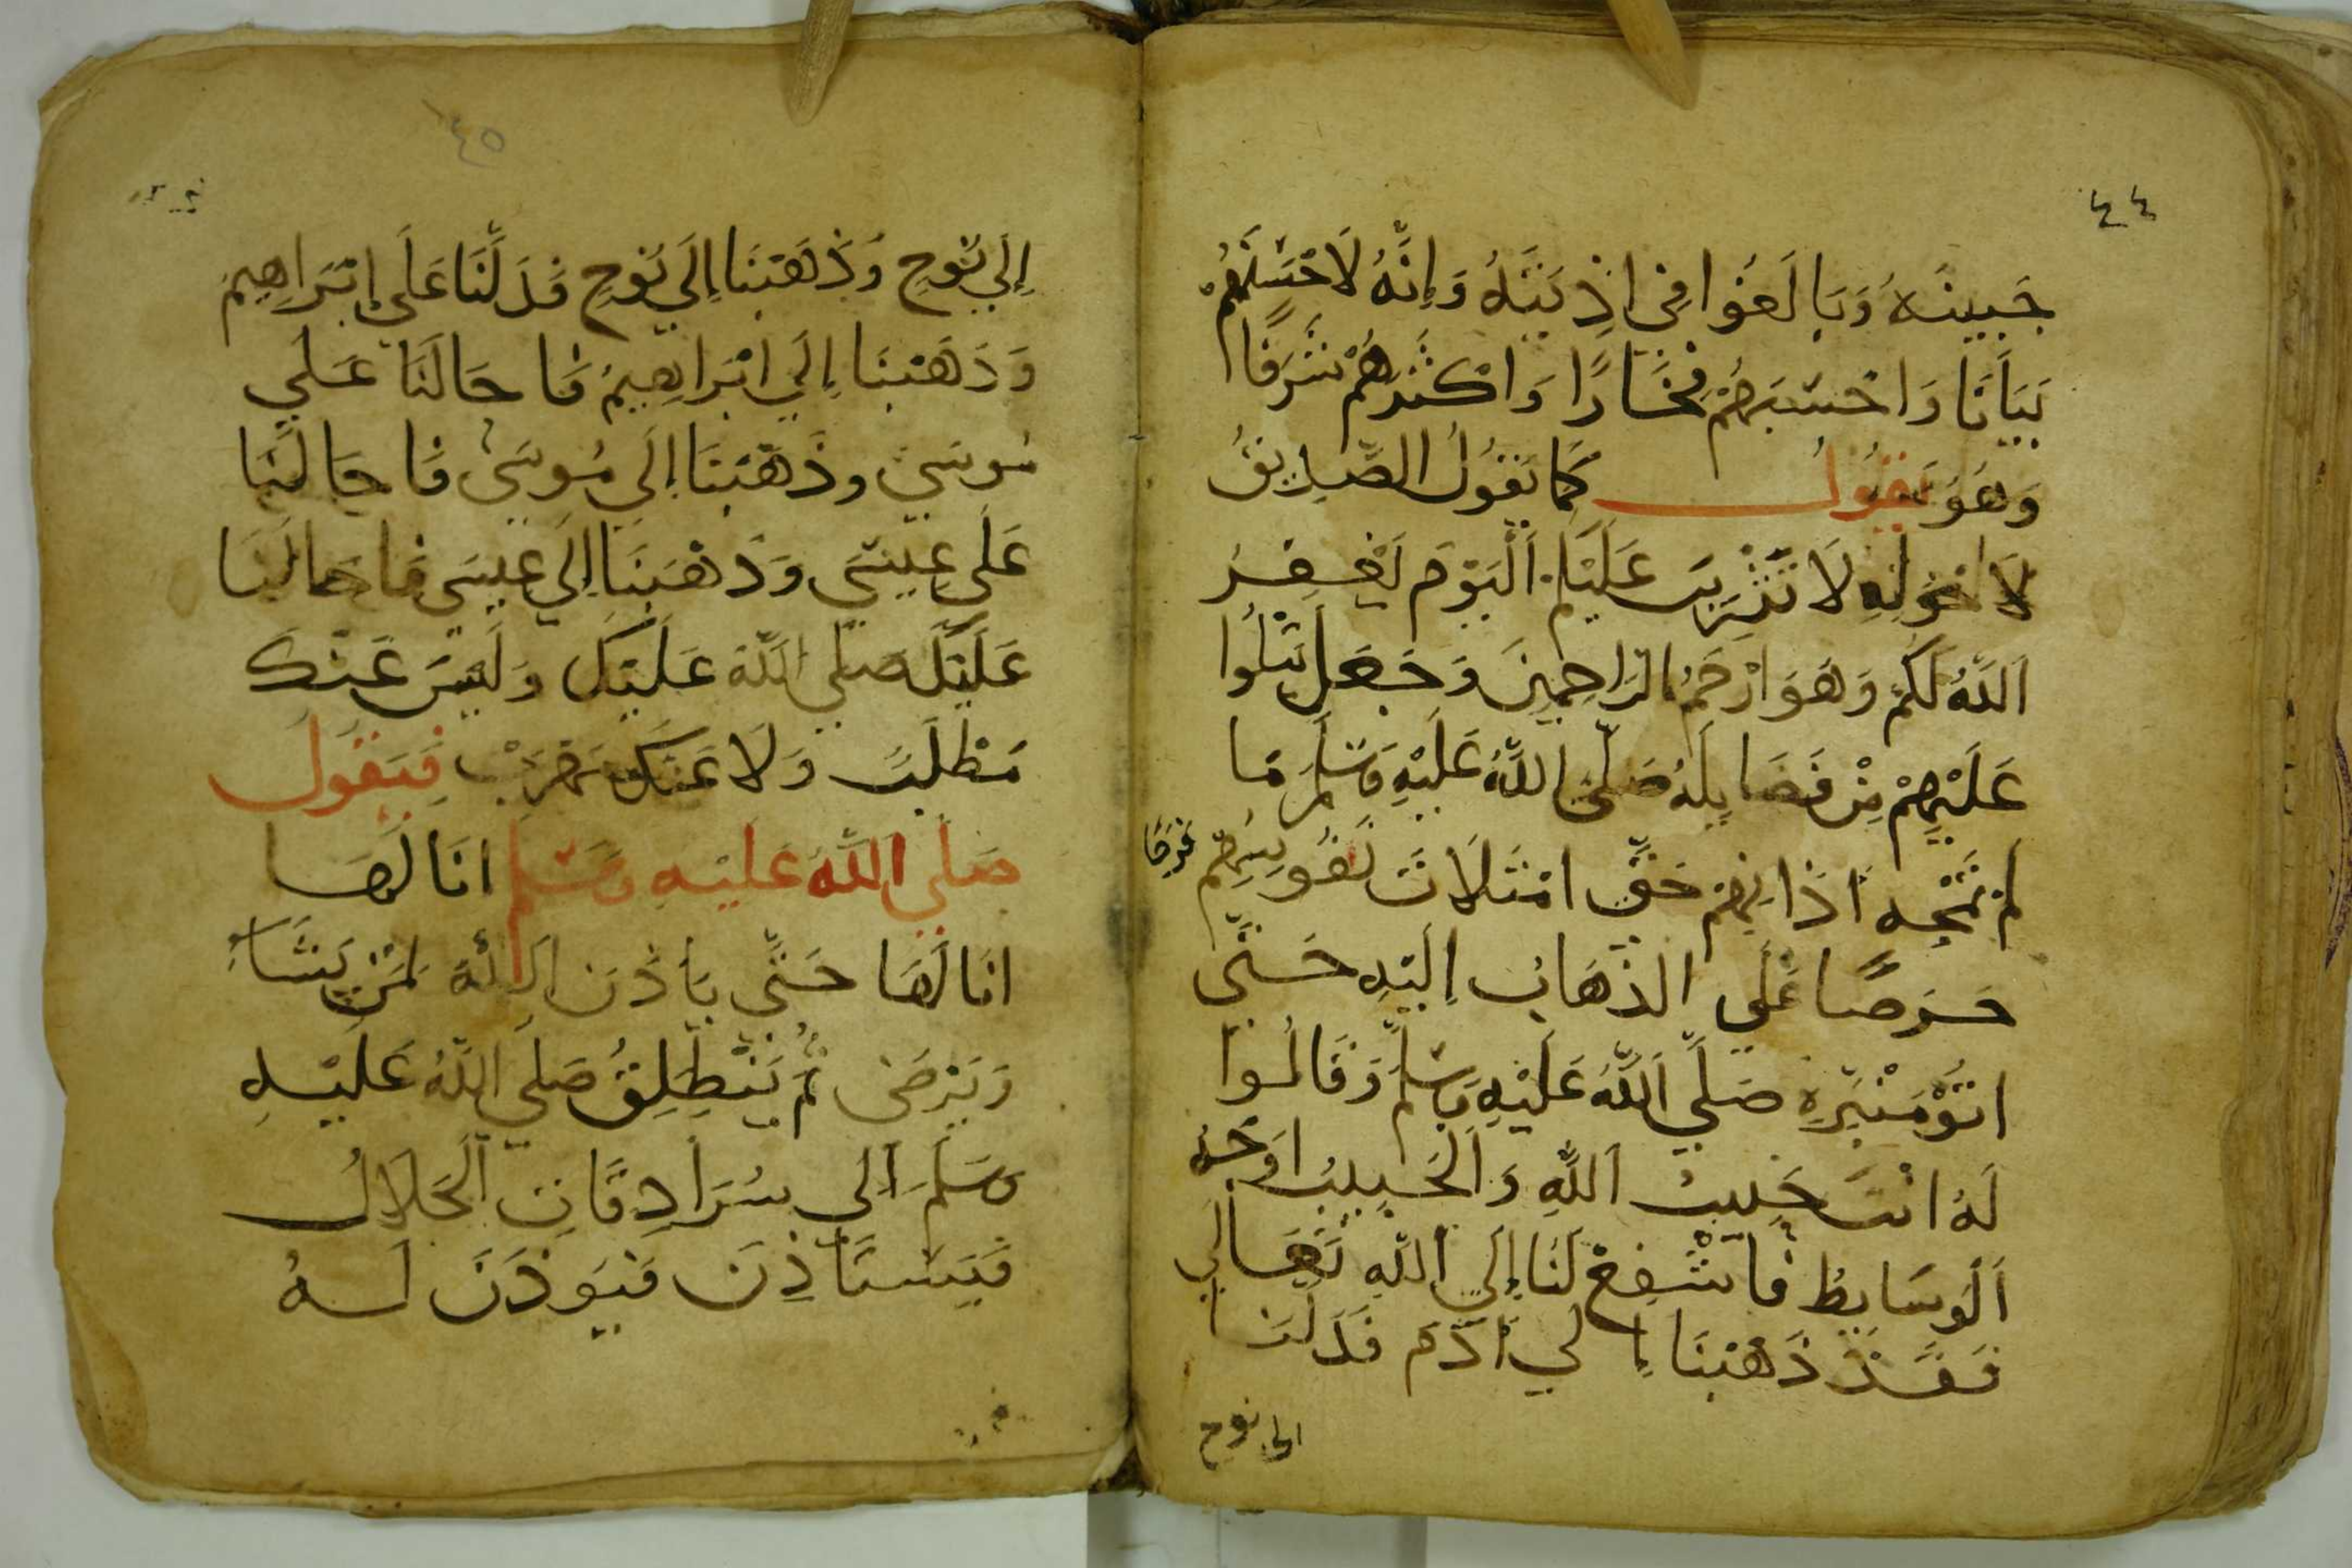 ٤٤
جَبِينَهُ وَبَالَغُوا فِي اذِيَّتِهُ وَإِنَّهُ لَاحْسَنَهُمْ
بَيَانًا وَاحْسَبَهُمْ فِخَارًا وَاكْثَرَهُمْ شَرَفًا
وَهُوَ يَقُولُ كَمَا يَقُولُ الصِّدِيقُ
لَاخْوَتِهِ لَا تَثْرِيبَ عَلَيْكُمُ اَلْيَوْمَ يَغْفِرُ
اَللَّهُ لَكُمْ وَهُوَ ارْحَمُ الرَاحِمِينَ وَجَعَلَ يَتْلُوا
عَلَيْهِمْ مِنْ فَضَايِلِهِ صَلَّى اللَّهُ عَلَيْهِ وَسَلَّمَ مَا
لَمْ تَمْجِهِ اذَانِهِمْ حَتَّى امْتَلَاتَ نُفُوسِهِمْ فَرَحًا
حَرِصًا عَلَي الذَهَابِ اِلَيْهِ حَتَّى
اتَوْ مَنْبَرِهِ صَلَّي اَللَّهُ عَلَيْهِ وَسَلَّمَ وَقَالُوا
لَهُ انْتَ حَبِيبُ اَللَّهِ وَاَلْحَبِيبُ اوْجَهُ
اَلْوسَايِطُ فَاشْفَعْ لَنَا إِلَي اَللَّهِ تَعَالَي
فَقَدْ ذَهَبْنَا إِلَي آدَمَ فَدَلَّنَا
الى نوح
٤٥
إِلَي نُوحٍ وَذَهَبْنَا إِلَي نُوحٍ فَدَلَّنَا عَلَي إِبْرَاهِيمَ
وَذَهَبْنَا إِلَي ابْرَاهِيمُ فَاحَالَنَا عَلَي
مُوسَي وذَهَبْنَا إِلَي مُوسَي فَاحَالَنَا
عَلَي عِيسَي وَذَهَبْنَا إِلَي عِيسَي فَاحَالَنَا
عَلَيْكَ صَلي اَللَّهُ عَلَيْكَ وَلَيْسَ عَنْكَ
مَطْلَبٌ وَلَا عَنْكَ مَهْرَبْ فَيَقُولُ
صَلَي اَللَّهُ عَلَيْهِ وَسَلَّم انَا لَهَا
انَا لَهَا حَتَّي يَاذَنَ اَللَّهُ لِمَنْ يَشَاءُ
وَيَرْضَى ثُمَّ يَنْطَلِقُ صَلَي اَللَّهُ عَلَيْهِ
وَسَلَّمَ الَي سُرَادِقَاتِ اَلْجَلَالُ
فَيَسْتَاذِنَ فَيَوذَنَ لَهُ